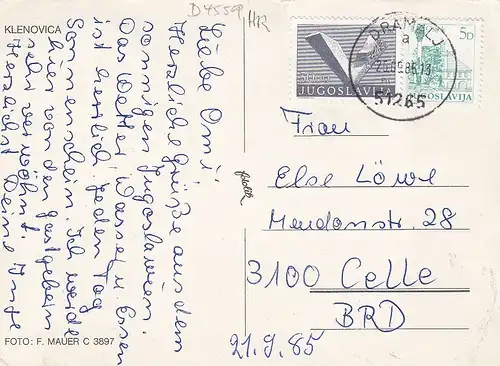 KLENOVICA
D4559/HR
Liebe Omi!
Herzliche Grüße aus dem
sonnigen Jugoslawien.
Das Wetter, Wasser u. Essen
ist herrlich. Jeden Tag
Sonnenschein. Ich werde
hier von den Gastgebern
sehr verwöhnt.
Herzlichst Deine Inge
FOTO: F. MAUER C 3897
JUGOSLAVIJA
DRAMALJ
a
51265
5D
JUGOSLAVIJA
Frau
Else Löwe
Meudonstr. 28
3100 Celle
BRD
21.9.85